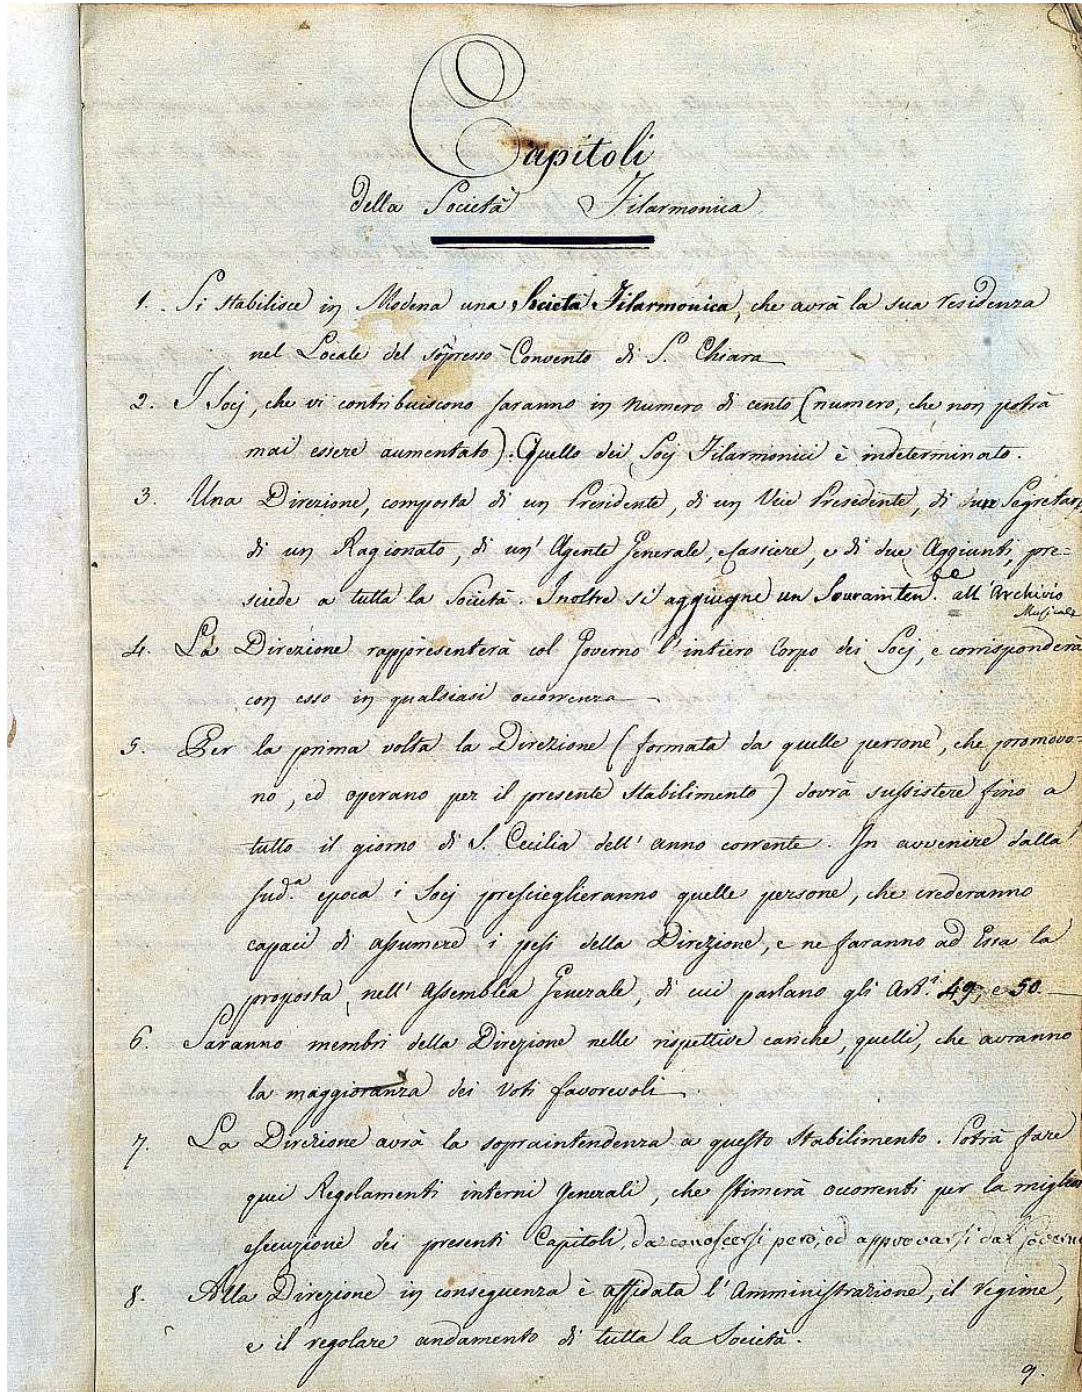 Capitoli
della Società Filarmonica
1. Si stabilisce in Modena una Società Filarmonica, che avrà la sua residenza
nel Locale del soppresso Convento di S. Chiara
2. I Socj, che vi contribuiscono saranno in numero di cento (numero, che non potrà
mai essere aumentato). Quello dei Socj Filarmonici è indeterminato.
3. Una Direzione, composta di un Presidente, di un Vice Presidente, di due Segretarj,
di un Ragionato, di un' Agente Generale, Cassiere, e di due Aggiunti, pre-
siede a tutta la Società. Inoltre si aggiugne un Sourainten.te all'Archivio
Musicale
4. La Direzione rappresenterà col Governo l'intiero Corpo dei Socj, e corrisponderà
con esso in qualsiasi occorrenza
5. Per la prima volta la Direzione (formata da quelle persone, che promovo-
no, ed operano per il presente Stabilimento) dovrà sussistere fino a
tutto il giorno di S. Cecilia dell'anno corrente. In avvenire dalla
sud.a epoca i Socj presceglieranno quelle persone, che crederanno
capaci di assumere i pesi della Direzione, e ne faranno ad Essa la
proposta nell'Assemblea Generale, di cui parlano gli Art.i 49, e 50.
6. Saranno membri della Direzione nelle rispettive cariche, quelli, che avranno
la maggioranza dei voti favorevoli.
7. La Direzione avrà la sopraintendenza a questo Stabilimento. Potrà fare
quei Regolamenti interni Generali, che stimerà occorrenti per la miglior
esecuzione dei presenti Capitoli, da conoscersi però, ed approvarsi dal Governo
8. Alla Direzione in conseguenza è affidata l'Amministrazione, il Regime,
e il regolare andamento di tutta la Società.
9.